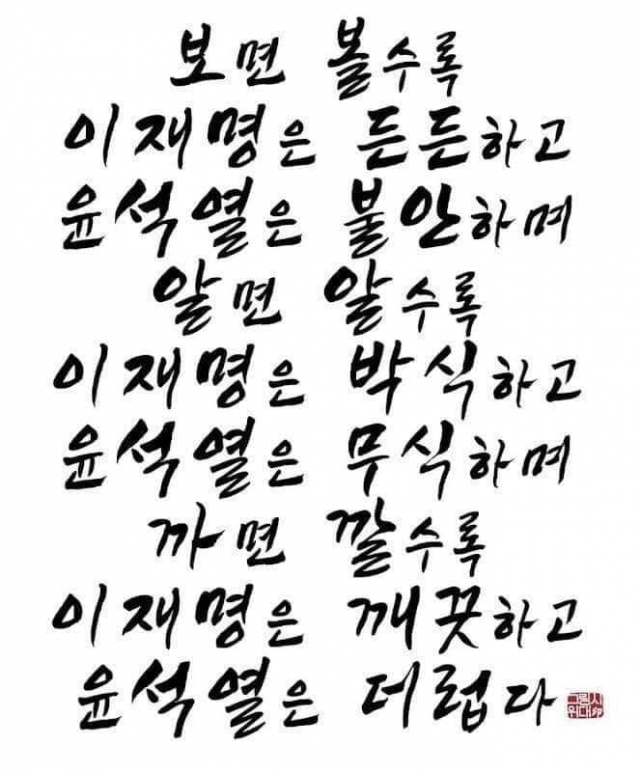 보면 볼수록
이재명은 든든하고
윤석열은 불안하며
알면 알수록
이재명은 박식하고
윤석열은 무식하며
까면 깔수록
이재명은 깨끗하고
윤석열은 더럽다